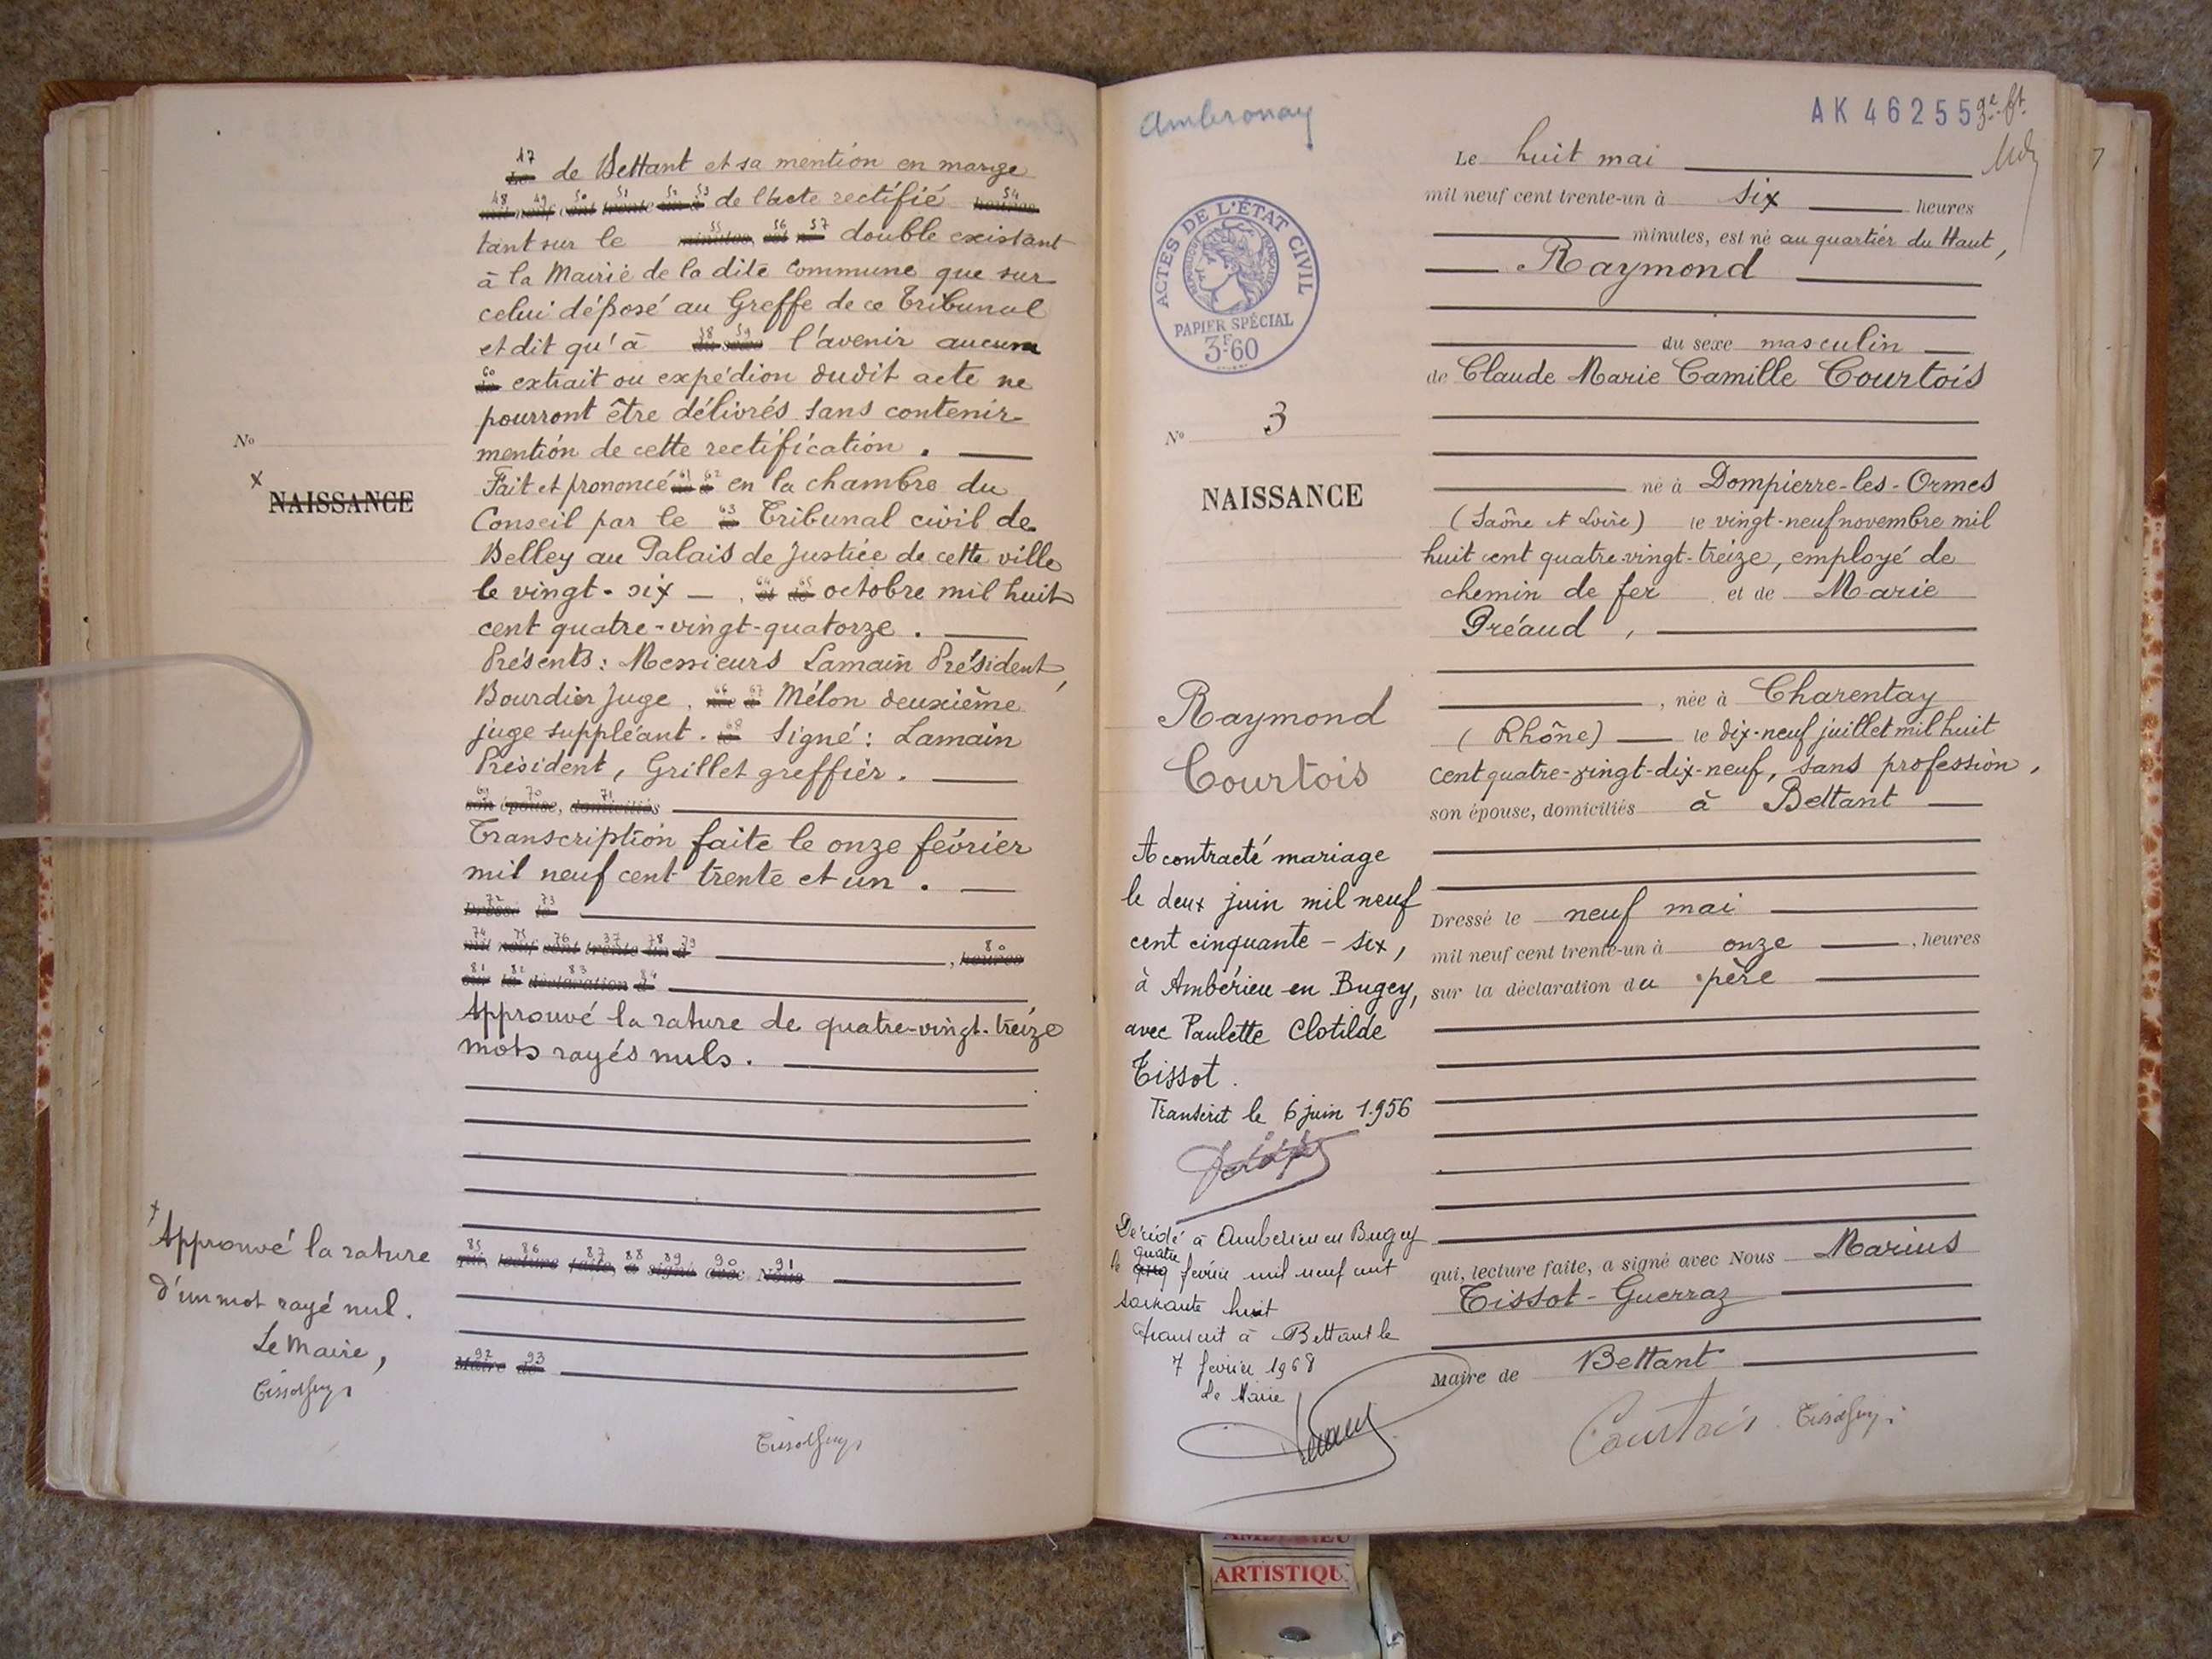 47
Le de Bettant et sa mention en marge
48 49 50 51 52 53 54
mil neuf cent trente un à de l'acte rectifié heures
55 56 57
tant sur le minutes, est né double existant
à la Mairie de la dite commune que sur
celui déposé au Greffe de ce Tribunal
58 59
et dit qu'à du sexe l'avenir aucun
60
de extrait ou expédion dudit acte ne
pourront être délivrés sans contenir
mention de cette rectification.
61 62
Fait et prononcé né à en la chambre du
63
Conseil par le le Tribunal civil de
Belley au Palais de Justice de cette ville
64 65
le vingt-six et de octobre mil huit
cent quatre-vingt-quatorze.
Présents: Messieurs Lamain Président,
66 67
Bourdier Juge. née à Mélon deuxième
68
juge suppléant. le Signé: Lamain
Président, Grillet greffier.
69 70 71
son épouse, domiciliés
Transcription faite le onze février
mil neuf cent trente et un.
72 73
Dressé le
74 75 76 37 78 79 80
mil neuf cent trente un à , heures
81 82 83 84
sur la déclaration d
Approuvé la rature de quatre-vingt-treize
mots rayés nuls.
85 86 87 88 89 90 91
qui, lecture faite, a signé avec Nous
92 93
Maire de
No
x
NAISSANCE
x Approuvé la rature
d'un mot rayé nul.
Le Maire,
Ambronay
ACTES DE L'ÉTAT CIVIL
RÉPUBLIQUE FRANÇAISE
PAPIER SPÉCIAL
3F60
No 3
NAISSANCE
Raymond
Courtois
A contracté mariage
le deux juin mil neuf
cent cinquante-six,
à Ambérieu en Bugey,
avec Paulette Clotilde
Tissot.
Transcrit le 6 juin 1956
Décédé à Ambérieu en Bugey
quatre
le cinq février mil neuf cent
soixante huit
transcrit à Bettant le
7 février 1968
Le Maire
AK 46255
7
Le huit mai
mil neuf cent trente-un à six heures
minutes, est né au quartier du Haut,
Raymond
du sexe masculin
de Claude Marie Camille Courtois
né à Dompierre-les-Ormes
(Saône et Loire) le vingt-neuf novembre mil
huit cent quatre-vingt-treize, employé de
chemin de fer et de Marie
Préaud,
, née à Charentay
(Rhône) le dix-neuf juillet mil huit
cent quatre-vingt-dix-neuf, sans profession,
son épouse, domiciliés à Bettant
Dressé le neuf mai
mil neuf cent trente-un à onze , heures
sur la déclaration du père
qui, lecture faite, a signé avec Nous Marius
Tissot-Guerraz
Maire de Bettant
Courtois
ARTISTIQU